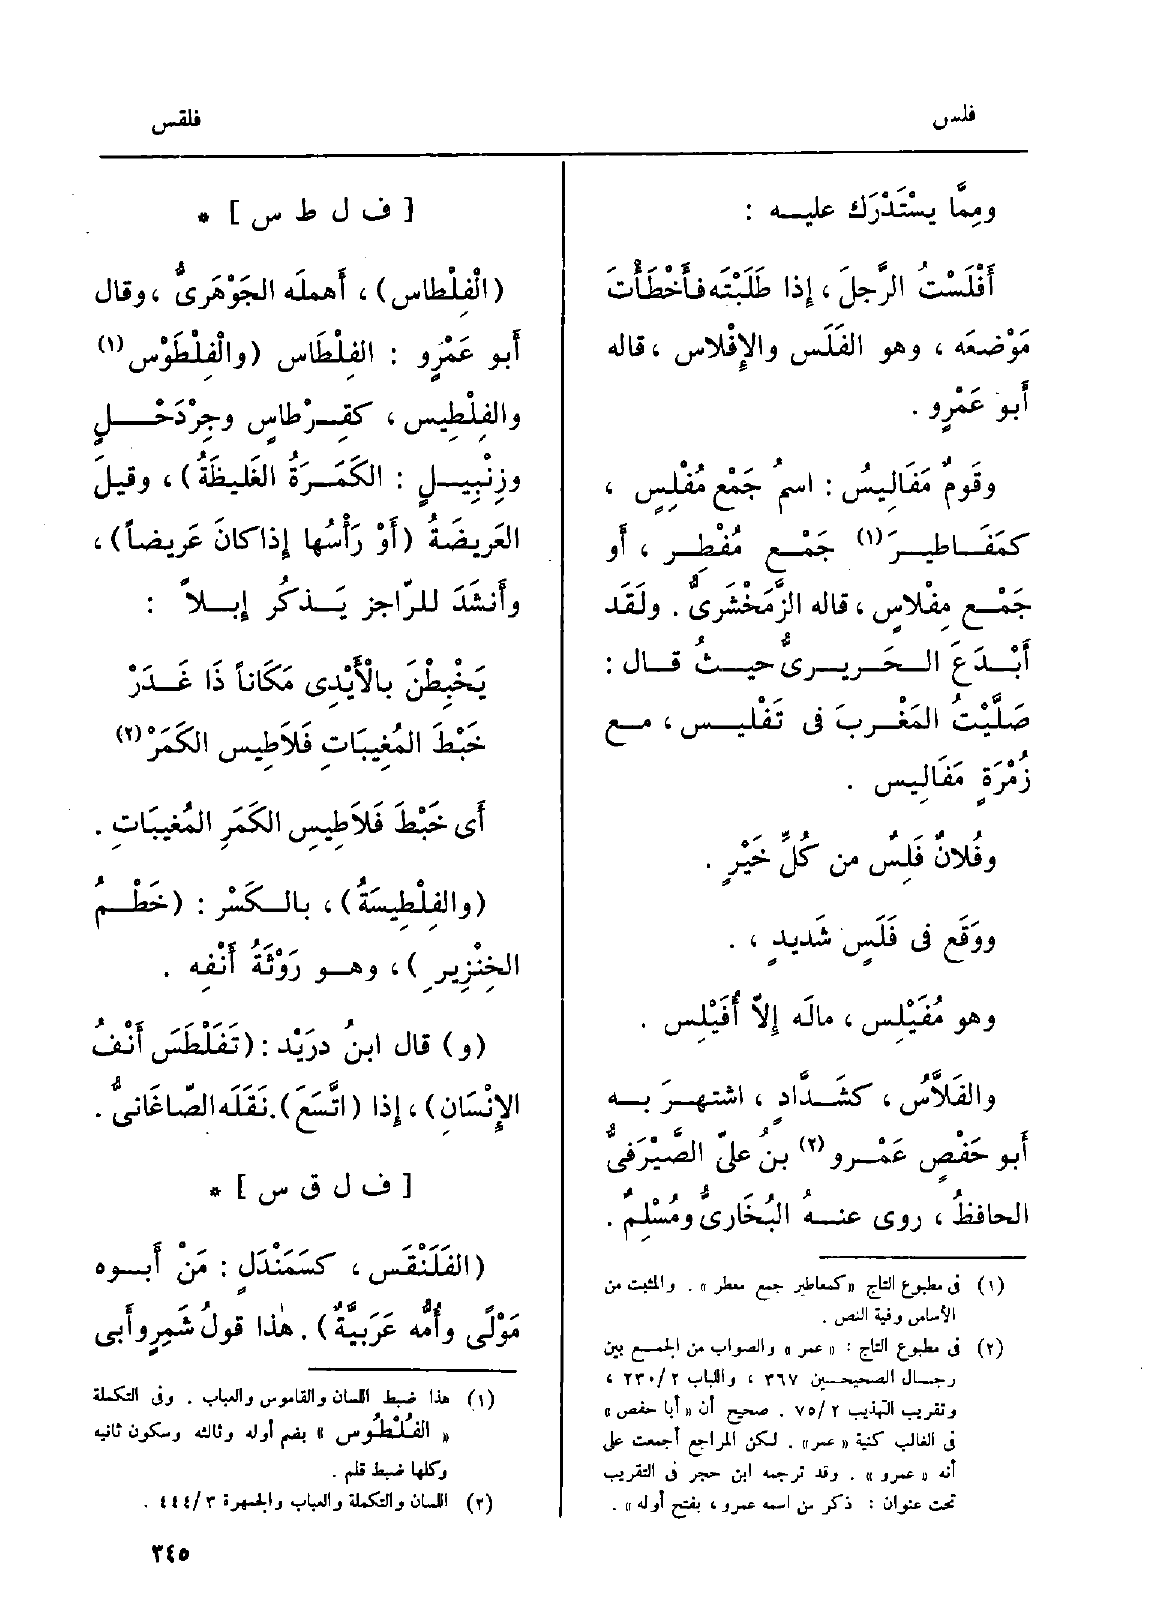 فلس
فلقس
ومِمَّا يسْتَدْرَك عليه :
أَفْلَسْتُ الرَّجلَ ، إذا طَلَبْتَه فأَخْطَأْتَ
مَوْضعَه ، وهو الفَلَس والإِفْلاس ، قاله
أبو عَمْرٍو .
وقَومٌ مَفَاليسُ : اسمُ جَمْعِ مُفْلِسٍ ،
كمَفَاطيرَ (١) جَمْع مُفْطِر ، أو
جَمْع مِفْلاسٍ ، قاله الزَّمَخْشَرىُّ . ولَقَد
أَبْدَعَ الحَريرىُّ حيثُ قال :
صَلَّيْتُ المَغْربَ فى تَفْليس ، مع
زُمْرَةٍ مَفَاليس .
وفُلانٌ فَلِسٌ من كُلِّ خَيْرٍ .
ووَقَع فى فَلَسٍ شَديدٍ ، .
وهو مُفَيْلِس ، مالَه إلاَّ أُفَيْلِس .
والفَلاَّسُ ، كشَدَّادٍ ، اشتهرَ به
أبو حَفْصٍ عَمْرو (٢) بنُ علىّ الصَّيْرَفىُّ
الحافظُ ، روى عنه البُخَارىُّ ومُسْلِمٌ .
(١) فى مطبوع التاج «كمعاطير جمع معطر» . والمثبت من
الأساس وفية النص .
(٢) فى مطبوع التاج : «عمر» والصواب من الجمع بين
رجال الصحيحين ٣٦٧ ، واللباب ٢/٢٣٠ ،
وتقريب التهذيب ٢/٧٥ . صحيح أن «أبا حفص»
فى الغالب كنية «عمر» . لكن المراجع أجمعت على
أنه «عمرو» . وقد ترجمه ابن حجر فى التقريب
تحت عنوان : ذكر من اسمه عمرو ، بفتح أوله» .
[ ف ل ط س ] *
(الْفِلْطاس) ، أهمله الجَوْهَرىُّ ، وقال
أَبو عَمْرٍو : الفِلْطَاس (والْفِلْطَوْس (١)
والفِلْطِيس ، كقِرْطاسٍ وجِرْدَحْلٍ
وزِنْبِيلٍ : الكَمَرَةُ الغَليظَةُ) ، وقيلَ
العَريضَةُ (أَوْ رَأْسُها إِذا كانَ عَريضاً) ،
وأَنشَدَ للرّاجز يَذكُر إِبلاً :
يَخْبِطْنَ بالأَيْدِى مَكَاناً ذَا غَدَرْ
خَبْطَ المُغِيبَاتِ فَلاَطِيس الكَمَرْ (٢)
أَى خَبْطَ فَلاَطِيسِ الكَمَرِ المُغيبَاتِ .
(والفِلْطِيسَةُ) ، بالكَسْر : (خَطْمُ
الخِنْزيرِ) ، وهو رَوْثَةُ أَنْفِه .
(و) قال ابنُ درَيْد : (تَفَلْطَسَ أَنْفُ
الإِنْسَان) ، إذا (اتَّسَعَ). نَقَلَه الصّاغَانىُّ .
[ ف ل ق س ] *
(الفَلَنْقَس ، كسَمَنْدَلٍ : مَنْ أَبوه
مَوْلًى وأُمُّه عَرَبيَّةٌ) . هٰذا قولُ شَمِرٍ وأَبى
(١) هذا ضبط اللسان والقاموس والعباب . وفى التكملة
«الفُلْطُوس» بضم أوله وثالثه وسكون ثانيه
وكلها ضبط قلم .
(٢) اللسان والتكملة والعباب والجمهرة ٣/٤٤٤ .
٣٤٥